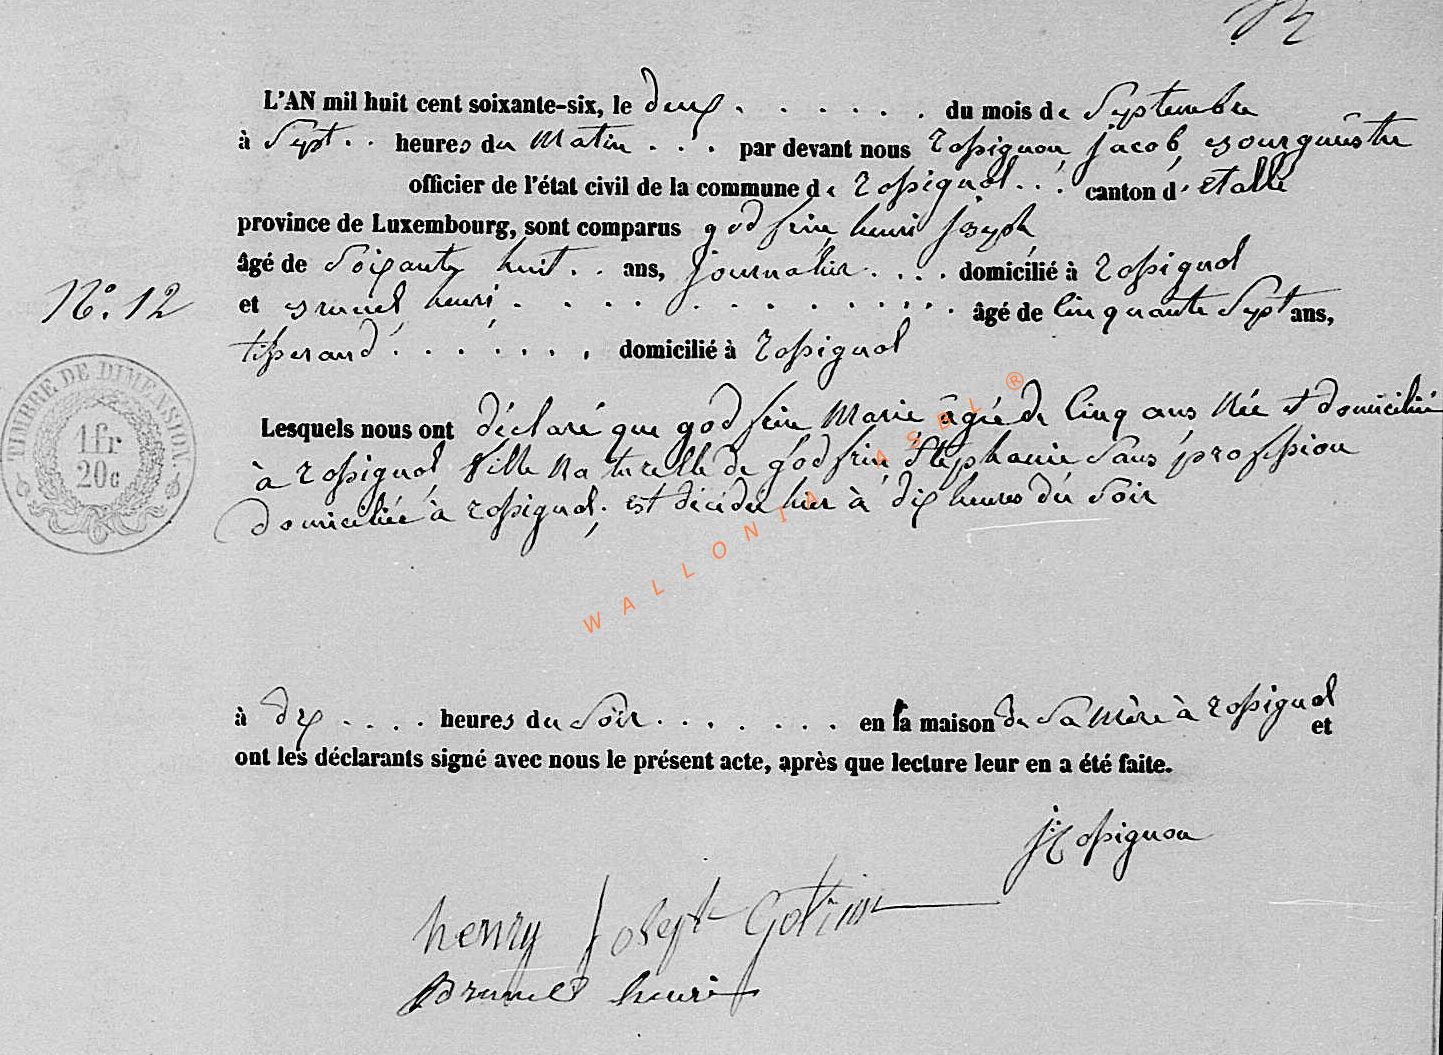 L'AN mil huit cent soixante-six, le deux . . . . . . du mois de Septembre
à Sept . . heures du Matin . . . par devant nous Rossignon, jacob, Bourguestre
officier de l'état civil de la commune de Rossignol . . . canton d'étalle
province de Luxembourg, sont comparus godfrin, henri joseph,
âgé de Soixante huit . . ans, journalier . . . . domicilié à Rossignol
N°. 12
et Brunel henri . . . . . . . . . . . . . âgé de Cinquante Sept ans,
tisserand . . . . . . . domicilié à Rossignol
TIMBRE DE DIMENSION
1 fr
20 c
Lesquels nous ont déclaré que godfrin Marie âgée de Cinq ans Née et domiciliée
à Rossignol, fille Naturelle de godfrin Stéphanie Sans profession
domiciliée à Rossignol, est décédée hier à dix heures du Soir
WALLONIA ASBL ®
à dix . . . . heures du Soir . . . . . . . en la maison de Sa Mère à Rossignol et
ont les déclarants signé avec nous le présent acte, après que lecture leur en a été faite.
J: Rossignon
henry Joseph Gotfrin
Brunel henri